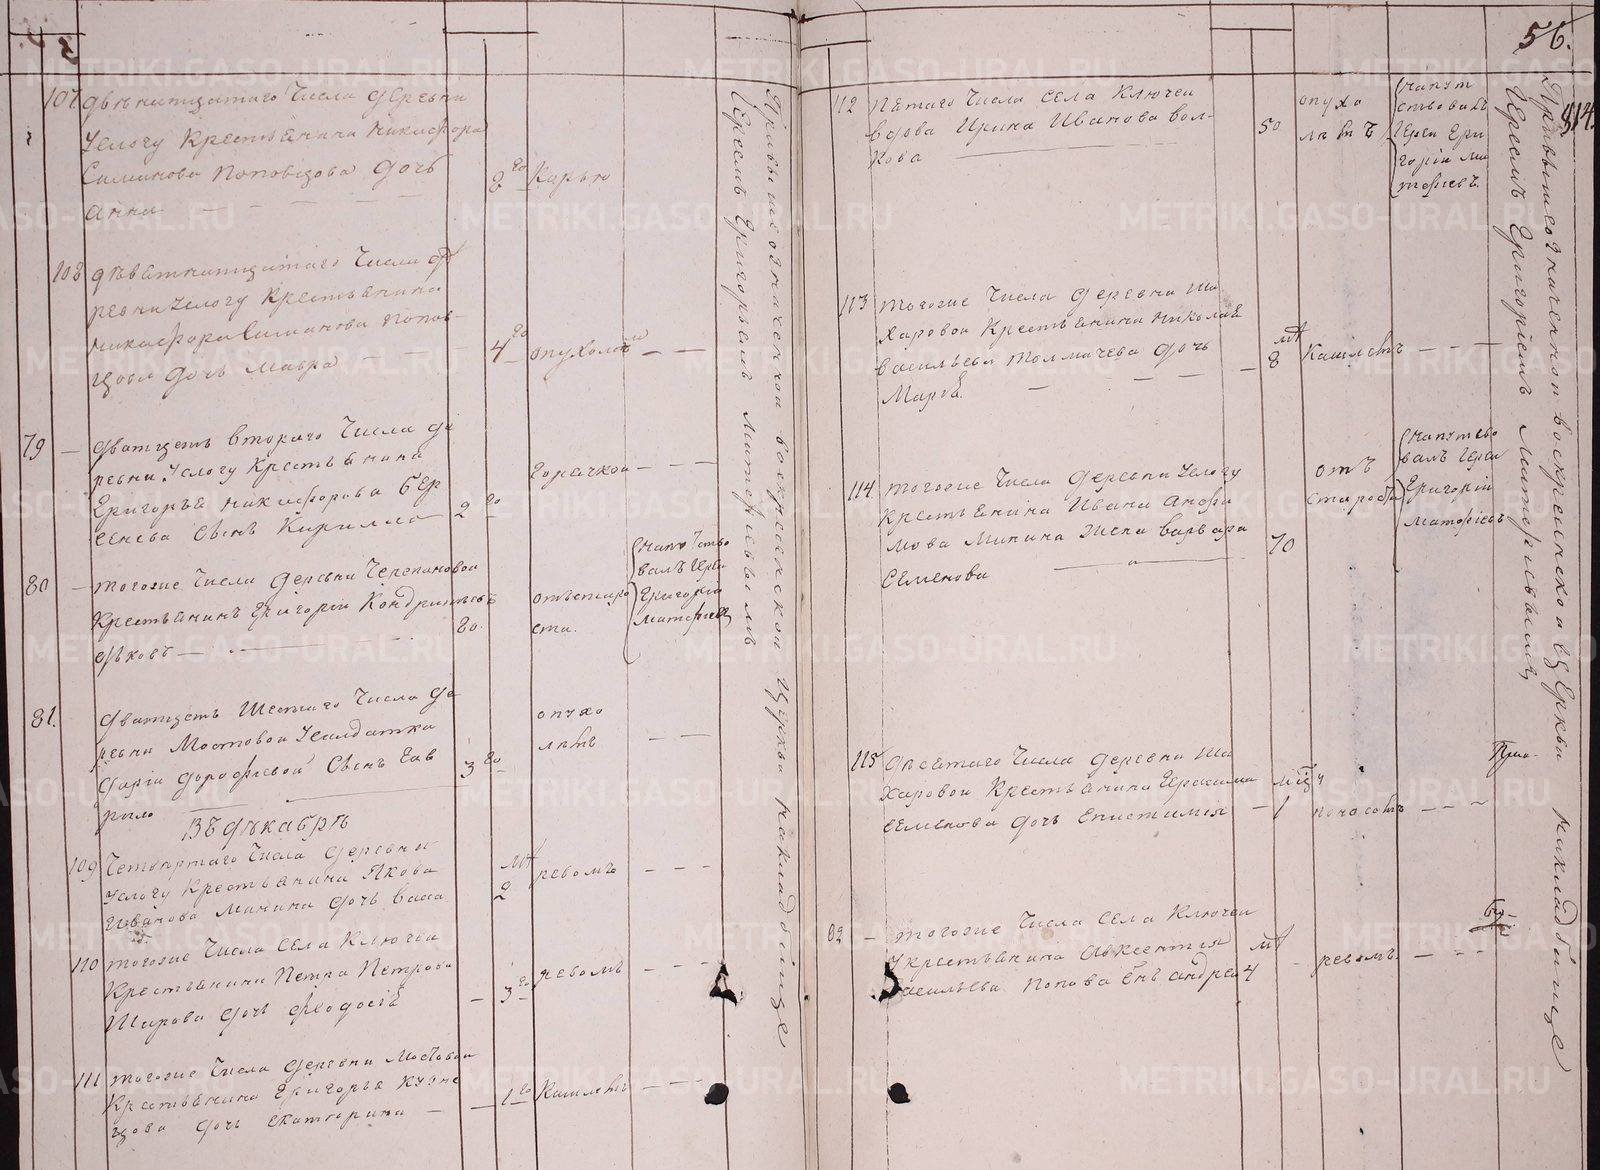 107
двенатцатаго Числа деревни
Усмогу Крестьянина Никифора
Симанова Поповцова дочь
Анна
2 го
Карью
108
деветнатцатаго Числа де
ревни Усмогу Крестьянина
Никифора Симанова Попов
цова дочь Мавра
4 го
опухолью
79
дватцеть втораго Числа де
ревни Крестьянина
Григорья Никифорова Бер
сенева Сынъ Кирилло
2 го
горячкой
80
тогоже Числа деревни Черепановой
Крестьянинъ Григорій Кондратьевъ
80.
отъ старо
сти.
валъ Іерей
Григорій
Матфіевъ
81.
дватцеть Шестаго Числа де
ревни Мостовой Солдатки
Дарьи Дорофеевой Сынъ Гав
рило
3 го
опухо
лью
Въ декабрѣ
109
Четвертаго Числа деревни
Крестьянина Якова
Иванова Минина дочь Васса
2
ревомъ
110
тогоже Числа села Ключей
Крестьянина Петра Петрова
Шарова дочь Феодосія
3 го
ревомъ
111
тогоже Числа деревни Мостовой
Крестьянина Григорья Кузне
цова дочь Екатерина
1 го
Кашлемъ
При вышеозначенной воскресенской церкви на кладбище
Іереемъ Григорьемъ Матфіевымъ
56.
814.
112
Пятаго Числа села Ключей
вдова Ирина Иванова Вол-
кова
50
опухо
лью
Напут
ствовалъ
Іерей Гри
горій Ма
тфіевъ
113
тогоже Числа деревни Ша
харовой Крестьянина Николая
Васильева Толмачева дочь
Марѳа.
8
Кашлемъ
114
тогоже Числа деревни
Крестьянина Ивана
Минина Жена Варвара
Семенова
70
отъ
старости
Напутство
валъ Іерей
Григорій
Матфіевъ
115
Десятаго Числа деревни Ша
харовой Крестьянина Герасима
Семенова дочь Епистимія
1
поносомъ
82
тогоже Числа села Ключей
Крестьянина Авксентія
Васильева Попова Сынъ Андрей
4
ревомъ
При вышеозначенной воскресенской церкви на кладбище
Іереемъ Григоріемъ Матфіевымъ
METRIKI.GASO-URAL.RU